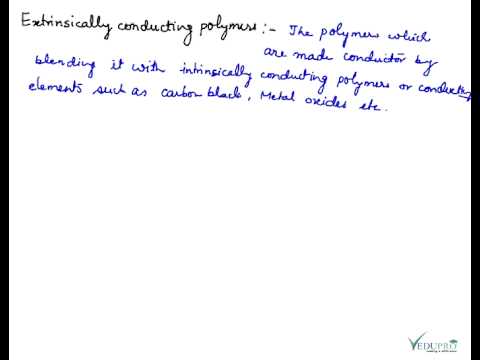 Extrinsically conducting polymers :- The polymers which
are made conductor by
blending it with intrinsically conducting polymers or conducting
elements such as carbon black, Metal oxides etc.
VEDUPRO